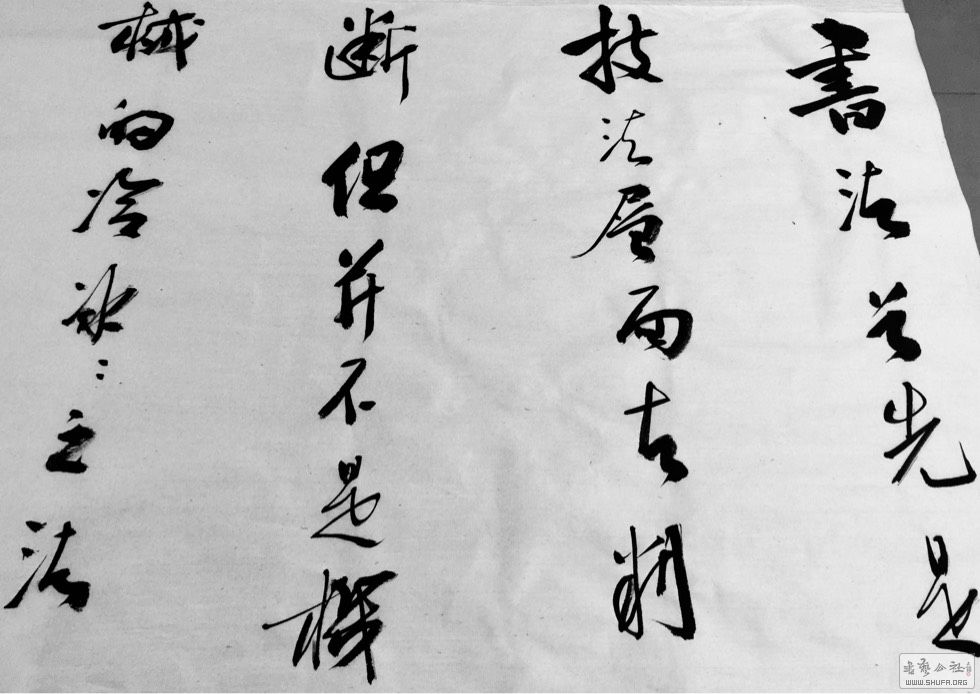 書法首先是
技法層面古判
斷但并不是機
械的冷冰冰之法
WWW.SHUFA.ORG